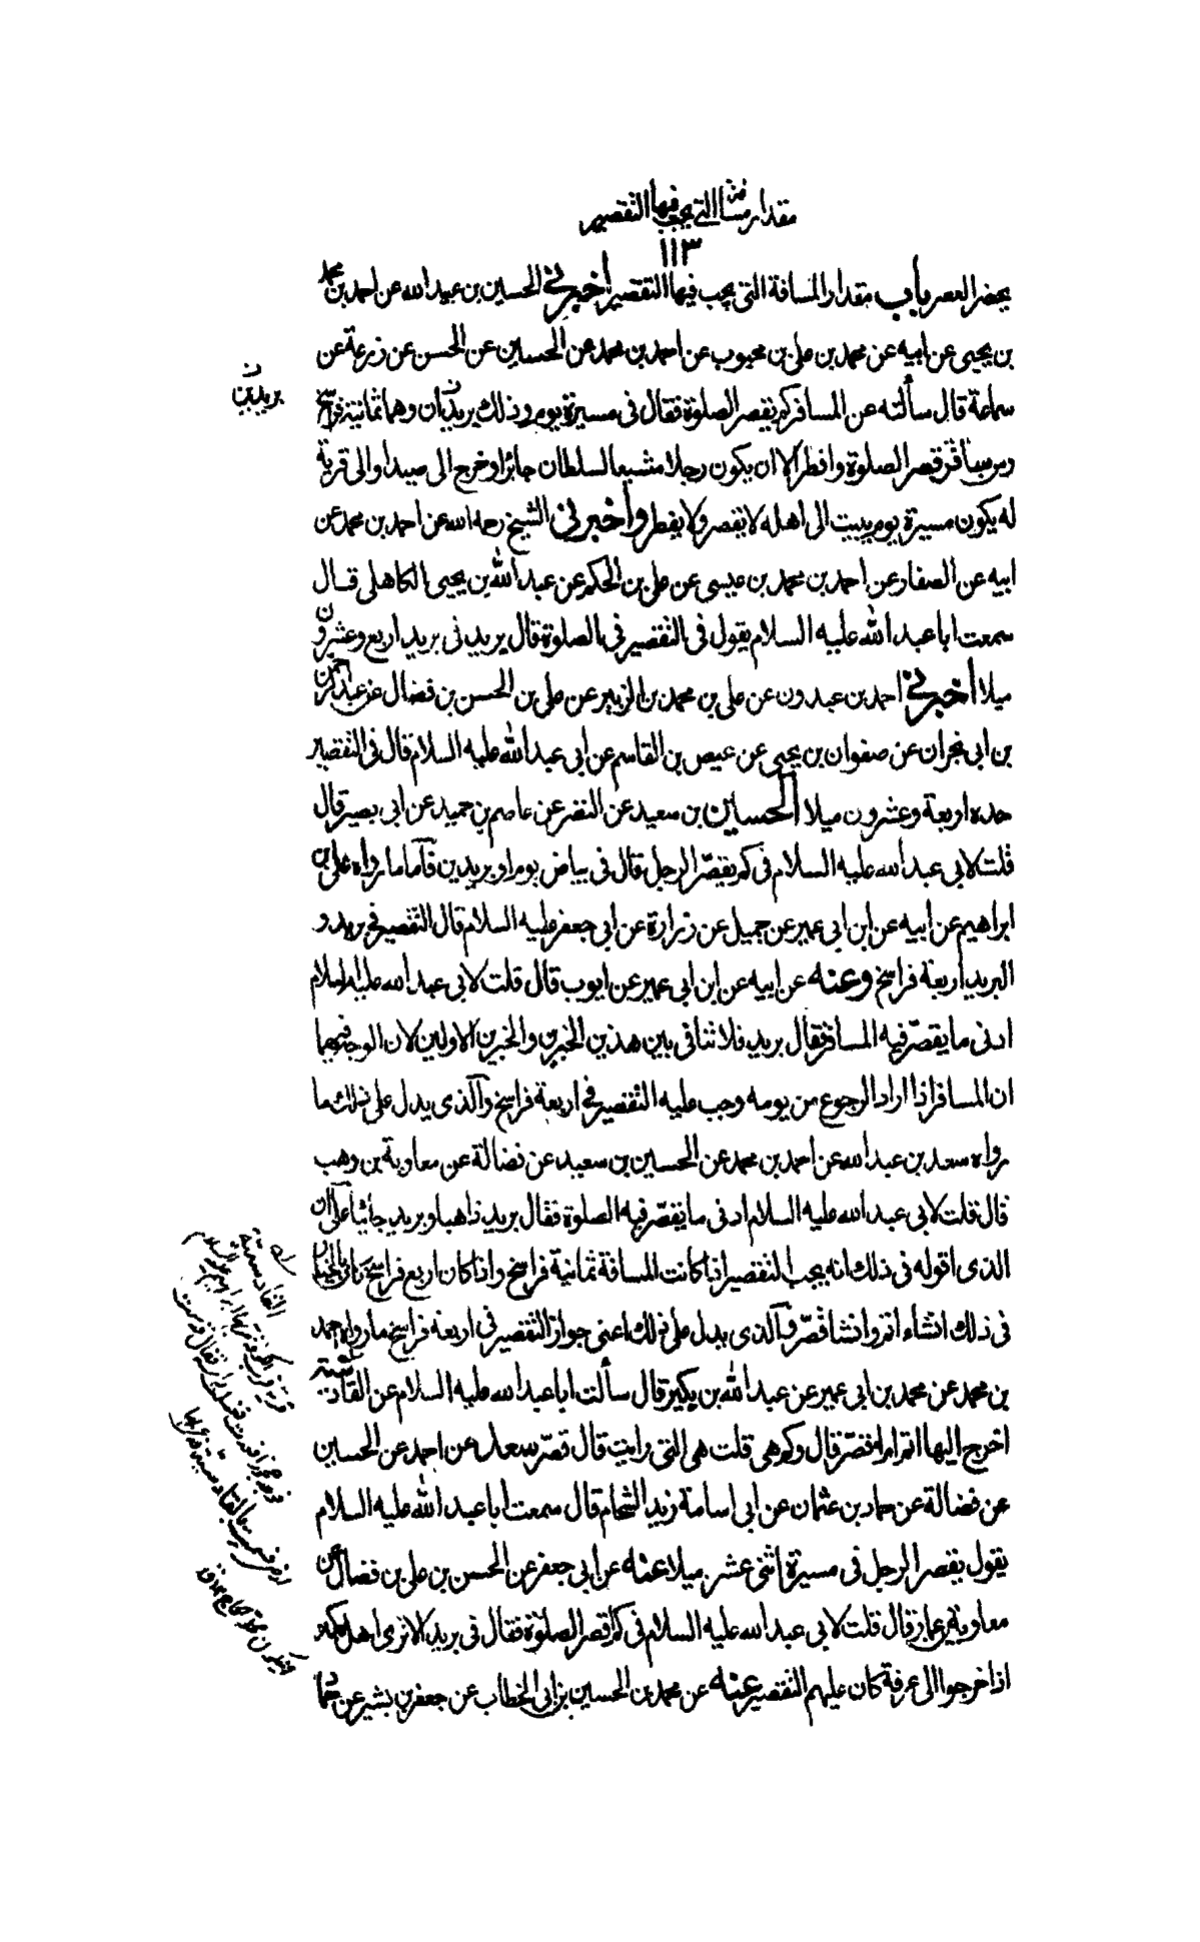 مقدار مسافة التي يجب فيها التقصير
١١٣
يحضر العصر باب مقدار المسافة التي يجب فيها التقصير أخبرني الحسين بن عبيد الله عن احمد بن محمد
بن يحيى عن ابيه عن محمد بن علي بن محبوب عن احمد بن محمد عن الحسين عن الحسن عن زرعة عن
سماعة قال سألته عن المسافر كم يقصر الصلوة فقال في مسيرة يوم وذلك بريدان وهما ثمانية فراسخ
ومن سافر قصر الصلوة وافطر الا ان يكون رجلا مشيعا لسلطان جائر او خرج الى صيد او الى قرية
له يكون مسيرة يوم يبيت الى اهله لا يقصر ولا يفطر وأخبرني الشيخ رحمه الله عن احمد بن محمد عن
ابيه عن الصفار عن احمد بن محمد بن عيسى عن علي بن الحكم عن عبد الله بن يحيى الكاهلي قال
سمعت ابا عبد الله عليه السلام يقول في التقصير في الصلوة قال بريد في بريد اربع وعشرون
ميلا أخبرني احمد بن عبدون عن علي بن محمد بن الزبير عن علي بن الحسن بن فضال عن عبد الرحمن
بن ابي نجران عن صفوان بن يحيى عن عيص بن القاسم عن ابي عبد الله عليه السلام قال في التقصير
حده اربعة وعشرون ميلا الحسين بن سعيد عن النضر عن عاصم بن حميد عن ابي بصير قال
قلت لابي عبد الله عليه السلام في كم يقصّر الرجل قال في بياض يوم او بريدين فأما ما رواه علي بن
ابراهيم عن ابيه عن ابن ابي عمير عن جميل عن زرارة عن ابي جعفر عليه السلام قال التقصير في بريد و
البريد اربعة فراسخ وعنه عن ابيه عن ابن ابي عمير عن ايوب قال قلت لابي عبد الله عليه السلام
ادنى ما يقصّر فيه المسافر فقال بريد فلا تنافي بين هذين الخبرين والخبرين الاولين لان الوجه فيهما
ان المسافر اذا اراد الرجوع من يومه وجب عليه التقصير في اربعة فراسخ والذي يدل على ذلك ما
رواه سعد بن عبد الله عن احمد بن محمد عن الحسين بن سعيد عن فضالة عن معاوية بن وهب
قال قلت لابي عبد الله عليه السلام ادنى ما يقصّر فيه الصلوة فقال بريد ذاهبا وبريد جائيا على ان
الذي اقوله في ذلك انه يجب التقصير اذا كانت المسافة ثمانية فراسخ واذا كان اربع فراسخ كان بالخيار
في ذلك ان شاء اتم وان شاء قصّر والذي يدل على ذلك اعني جواز التقصير في اربعة فراسخ ما رواه احمد
بن محمد عن محمد بن ابي عمير عن عبد الله بن بكير قال سألت ابا عبد الله عليه السلام عن القادسية
اخرج اليها اتم ام اقصّر قال وكم هي قلت هي التي رايت قال قصّر سعد عن احمد عن الحسين
عن فضالة عن حماد بن عثمان عن ابي اسامة زيد الشحام قال سمعت ابا عبد الله عليه السلام
يقول يقصر الرجل في مسيرة اثني عشر ميلا عنه عن ابي جعفر عن الحسن بن علي بن فضال عن
معاوية بن عمار قال قلت لابي عبد الله عليه السلام في كم اقصر الصلوة فقال في بريد الا ترى اهل مكة
اذا خرجوا الى عرفة كان عليهم التقصير عنه عن محمد بن الحسين بن ابي الخطاب عن جعفر بن بشير عن حماد
بريدين
القادسية
قرية قرب الكوفة